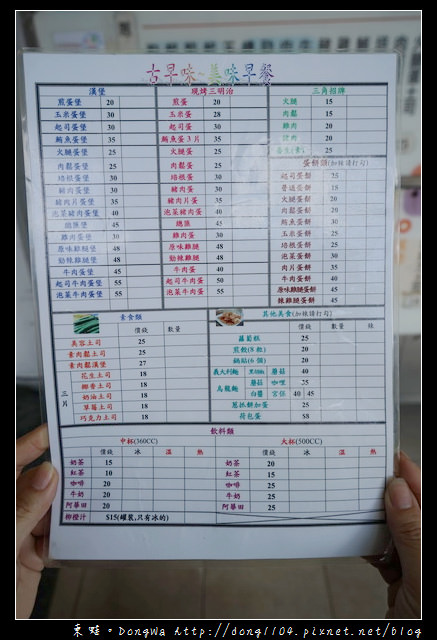 古早味~美味早餐
漢堡 現烤三明治 三角招牌
煎蛋堡 20 煎蛋 20 火腿 15
玉米蛋堡 30 玉米蛋 28 肉鬆 15
起司蛋堡 30 起司蛋 30 雞肉 20
鮪魚蛋堡 35 鮪魚蛋3片 35 20
火腿蛋堡 25 火腿蛋 25 25
肉鬆蛋堡 25 肉鬆蛋 25 蛋餅類(加辣請打勾)
培根蛋堡 30 培根蛋 30 起司蛋餅 25
豬肉蛋堡 30 豬肉蛋 30 普通蛋餅 18
豬肉片蛋堡 35 豬肉片蛋 35 火腿蛋餅 20
泡菜豬肉蛋堡 40 泡菜豬肉蛋 40 肉鬆蛋餅 20
總匯堡 45 總匯 45 鮪魚蛋餅 30
雞肉蛋堡 30 雞肉蛋 30 玉米蛋餅 25
原味雞腿堡 48 原味雞腿 48 培根蛋餅 25
勁辣雞腿堡 48 勁辣雞腿 48 肉片蛋餅 35
牛肉蛋堡 45 牛肉蛋 40 牛肉蛋餅 40
起司牛肉蛋堡 55 起司牛肉蛋 50 原味雞腿蛋餅 45
泡菜牛肉蛋堡 55 泡菜牛肉蛋 55 辣雞腿蛋餅 45
素食類 其他美食(加辣請打勾)
價錢 數量 價錢 數量 辣
美容土司 25 蘿蔔糕 25
素肉鬆土司 25 煎餃(8粒) 20
素肉鬆漢堡 27 鍋貼(6個) 20
三片
花生土司 18 義大利麵 黑胡椒 蘑菇 40
椰香土司 18 烏龍麵 蘑菇 咖哩 35
奶油土司 18 白醬 宮保 40 45
草莓土司 18 蔥抓餅加蛋 25
巧克力土司 18 荷包蛋 $8
飲料類
中杯(360CC) 大杯(500CC)
價錢 冰 溫 熱 價錢 冰 溫 熱
奶茶 15 奶茶 20
紅茶 10 紅茶 15
咖啡 20 咖啡 25
牛奶 20 牛奶 25
阿華田 20 阿華田 25
柳橙汁 $15(罐裝,只有冰的)
東蛙。DongWa http://dong1104.pixnet.net/blog